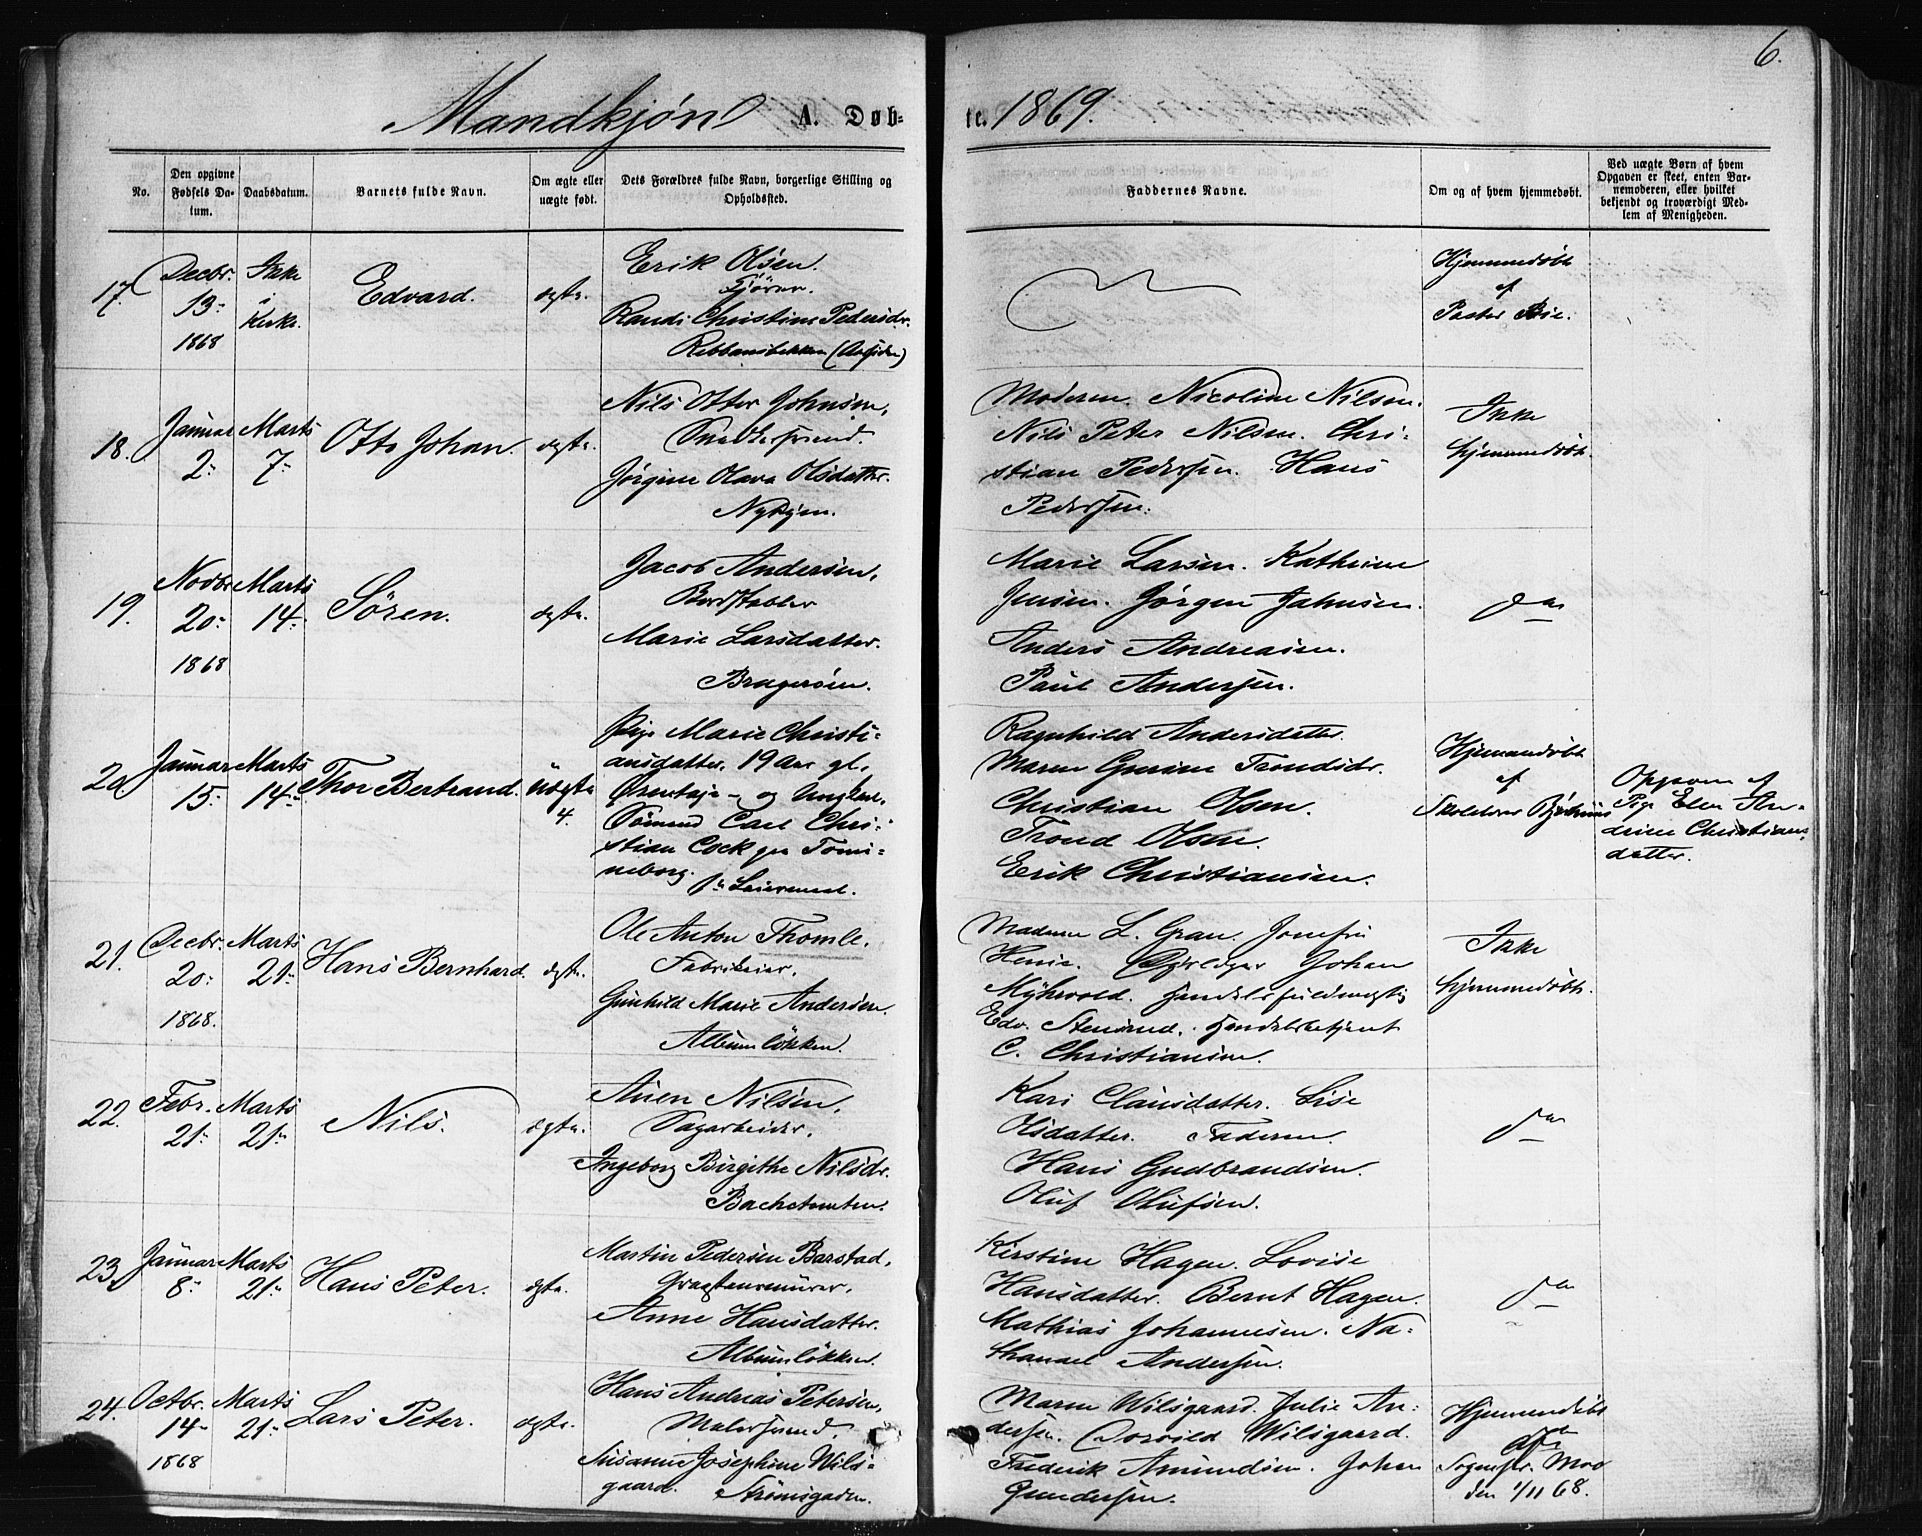 6.
Mandkjøn A. Døb-
te. 1869.
No.
Den opgivne
Fødsels Da-
tum.
Daabsdatum.
Barnets fulde Navn.
Om ægte eller
uægte født.
Dets Forældres fulde Navn, borgerlige Stilling og
Opholdssted.
Faddernes Navne.
Om og af hvem hjemmedøbt.
Ved uægte Børn af hvem
Opgaven er skeet, enten Bar-
nemoderen, eller hvilket
bekjendt og troværdigt Med-
lem af Menigheden.
17.
Decbr.
13
1868
Ikke
i
Kirke.
Edvard.
ægte.
Erik Olsen.
Randi Christine Pedersdr.
Hjemmedøbt
af
Pastor Bie.
18.
Januar
2
Marts
7
Otto Johan.
ægte.
Nils Otter Johnsen,
Snedkersvend.
Jørgine Olava Olsdatter.
Nybyen.
Moderen. Nicoline Nilsen.
Nils Peter Nilsen. Chri-
stian Pedersen. Hans
Pedersen.
Ikke
hjemmedøbt.
19.
Novbr
20
1868
Marts
14
Søren.
ægte.
Jacob Andersen,
Bordstabler
Marie Larsdatter.
Bragerøen.
Marie Larsen. Kathrine
Jensen. Jørgen Jahnsen.
Anders Andreasen.
Paul Andersen.
do
20
Januar
15
Marts
14
Thor Bertrand.
Uægte
4.
Pige Marie Christi-
ansdatter. 19 Aar gl.
og Ungkarl,
Sømand Carl Chri-
stian Cock paa Tomi-
neborg.
1ste Leiermaal.
Ragnhild Andersdatter.
Maren Gurine Trondsdr.
Christian Olsen.
Trond Olsen.
Erik Christiansen.
Hjemmedøbt
af
Opgaven af
Pige Elen An-
drine Christians-
datter.
21.
Decbr.
20
1868.
Marts
21
Hans Bernhard.
ægte.
Ole Anton Thomle,
Fabrikeier,
Gunhild Marie Andersen.
Albumløkken.
Madame L. Gran. Jomfru
Henie. Johan
Myhrvold. Handelsfuldmægtig
Edv. Stensrud. Handelsbetjent
C. Christiansen.
Ikke
hjemmedøbt.
22.
Febr.
21
Marts
21
Nils.
ægte.
Auen Nilsen,
Sagarbeider,
Ingeborg Birgithe Nilsdr.
Bachetomten.
Kari Clausdatter. Lise
Olsdatter. Faderen.
Hans Gudbrandsen.
Oluf Olufsen.
do
23
Januar
8
Marts
21
Hans Peter.
ægte.
Martin Pedersen Barstad,
Graastensmurer,
Anne Hansdatter.
Albumløkken.
Kirstine Hagen. Lovise
Hansdatter. Bernt Hagen.
Mathias Johannesen. Na-
thanael Andersen.
do
24.
Octbr.
14
1868
Marts
21
Lars Peter.
ægte.
Hans Andreas Petersen,
Malersvend.
Susanne Josephine Wils-
gaard. Strømsgaden.
Maren Wilsgaard. Julie An-
dersen. Wilsgaard.
Frederik Amundsen. Johan
Gundersen.
Hjemmedøbt
af
Sognepr. Moe
den 1/11 68.